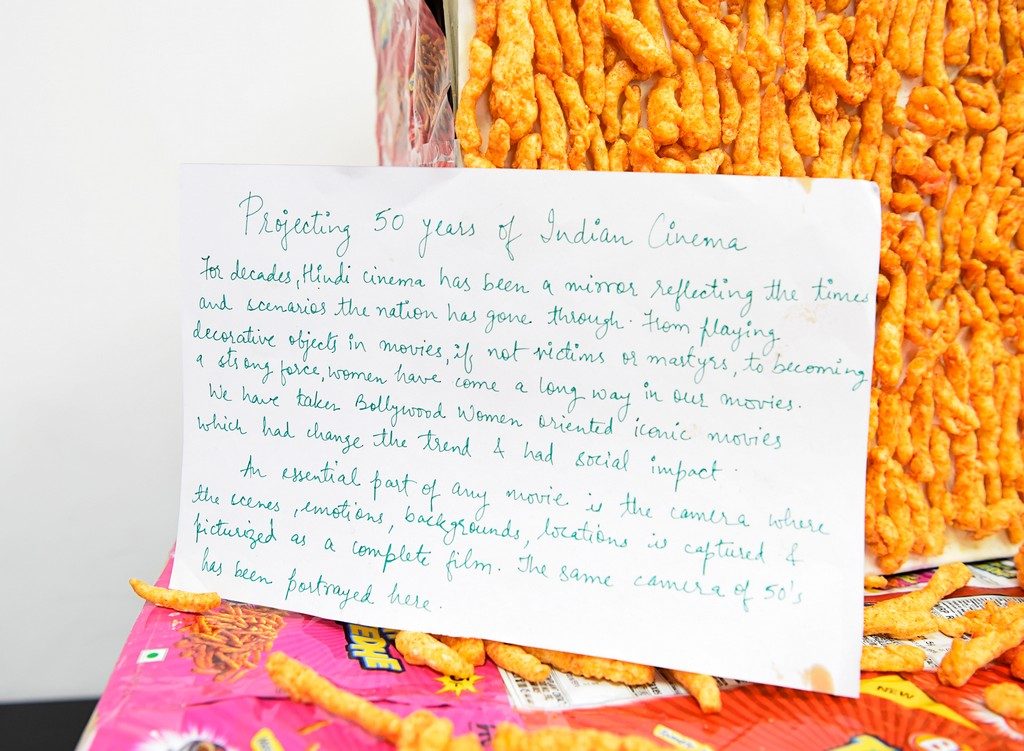 Projecting 50 years of Indian Cinema
For decades, Hindi cinema has been a mirror reflecting the times
and scenarios the nation has gone through. From playing
decorative objects in movies, if not victims or martyrs, to becoming
a strong force, women have come a long way in our movies.
We have taken Bollywood Women oriented iconic movies
which had change the trend & had social impact.
An essential part of any movie is the camera where
the scenes, emotions, backgrounds, locations is captured &
picturized as a complete film. The same camera of 50's
has been portrayed here.
NEW